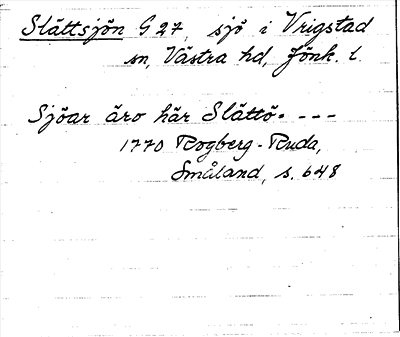 Slättsjön G 27, sjö i Vrigstad
sn, Västra hd, Jönk. l.
Sjöar äro här Slättö. ---
1770 Rogberg-Ruda,
Småland, s. 648